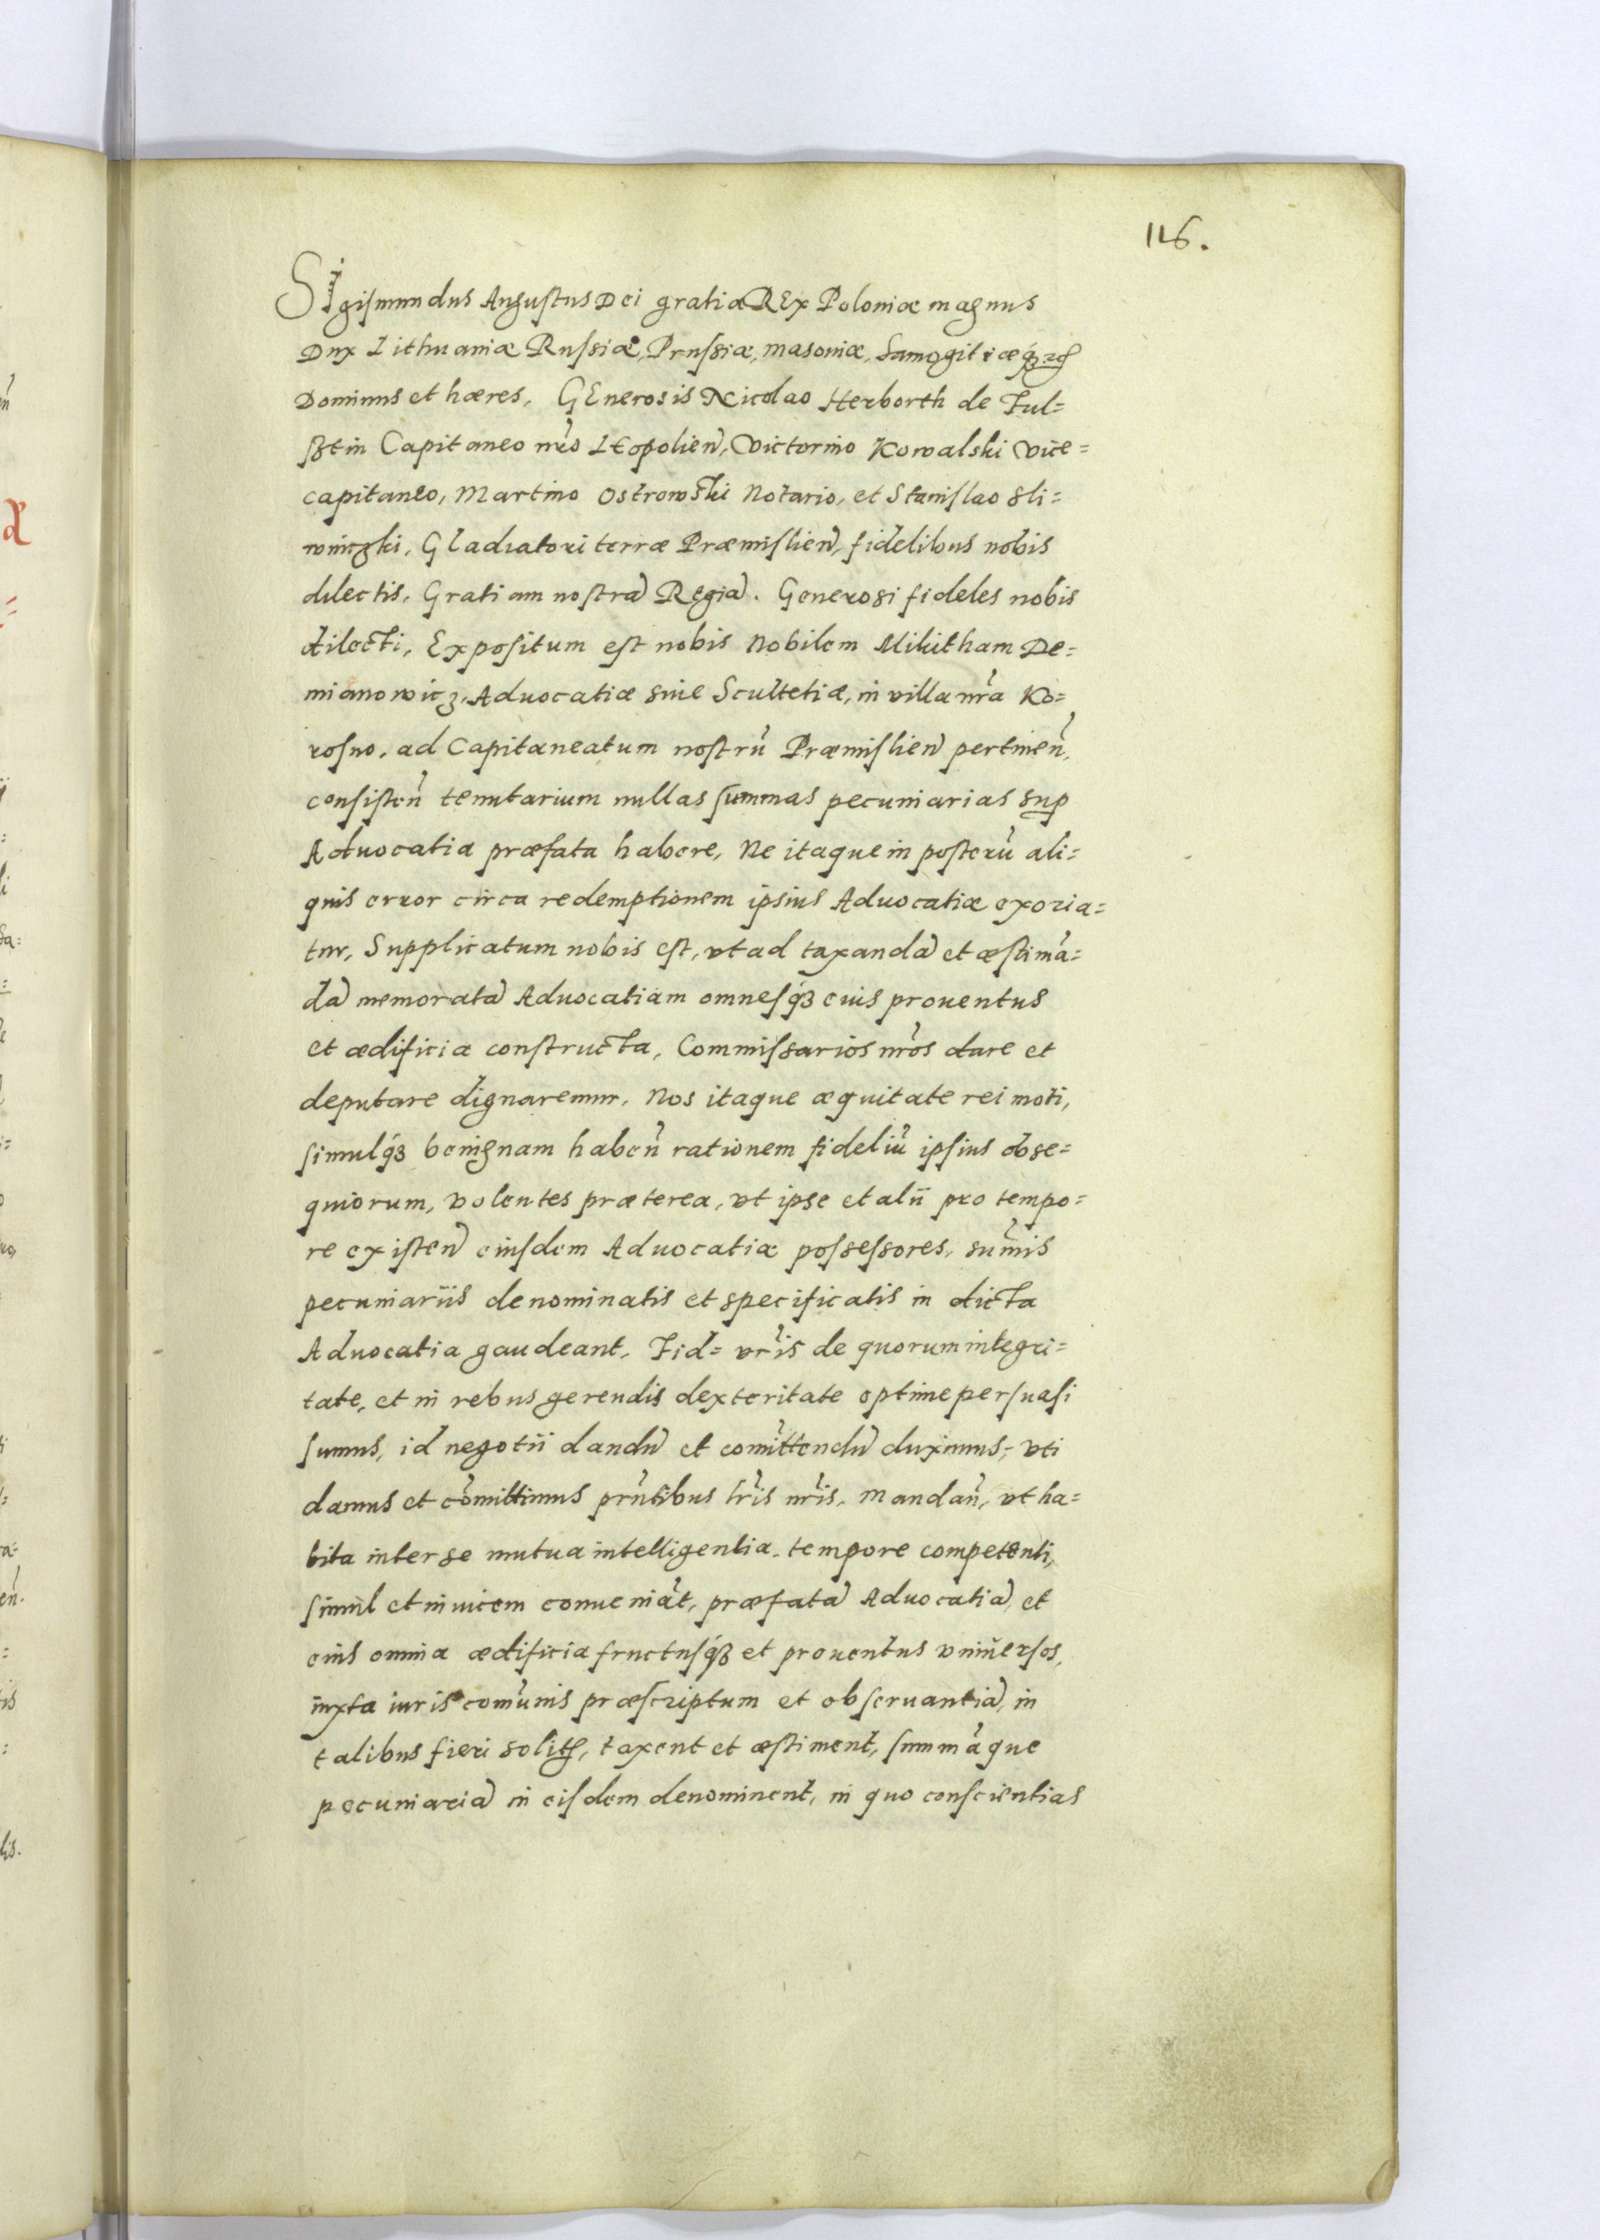 116.
SIgismundus Augustus Dei gratia REx Poloniæ magnus
Dux Lithuaniæ Russiæ, Prussiæ, Masoniæ, Samogitiæ
Dominus et hæres, GEnerosis Nicolao Herborth de Ful=
sztin Capitaneo nr̃o LEopolien̄, Victorino Kowalski Vice=
capitaneo, Martino Ostrowski Notario, et Stanislao Sli=
winczki, Gladiatori terræ Præmislien̄, fidelibus nobis
dilectis, Gratiam nostrā Regiā. Generosi fideles nobis
dilecti, Expositum est nobis Nobilem Mikitham De=
mianowicz, Aduocatiæ siue Scultetiæ, in villa nr̃a Ko=
rosno, ad Capitaneatum nostrū Præmislien̄ pertinen̄,
consisten̄ tenutarium nullas summas pecuniarias sup
Aduocatia præfata habere, Ne itaque in posterū ali=
quis error circa redemptionem ipsius Aduocatiæ exoria=
tur, Supplicatum nobis est, vt ad taxandā et æstimā=
dā memoratā Aduocatiam omnesq́ꝫ euis prouentus
et ædificia constructa, Commissarios nr̃os dare et
deputare dignaremur, Nos itaque æquitate rei moti,
simulq́ꝫ benignam haben̄ rationem fideliū ipsius obse=
quiorum, volentes præterea, vt ipse et alii pro tempo=
re existen̄ eiusdem Aduocatiæ possessores, sum̄is
pecuniariis denominatis et specificatis in dicta
Aduocatia gaudeant, Fid= vr̃is de quorum integri=
tate, et in rebus gerendis dexteritate optime persuasi
sumus, id negotii dandū et com̄ittendū duximus, vti
damus et com̄ittimus prn̄tibus lr̃is nr̃is, Mandan̄, vt ha=
bita inter se mutua intelligentia, tempore competenti,
simul et inuicem conueniāt, præfatā Aduocatiā, et
eius omnia ædificia fructusq́ꝫ et prouentus vniuersos,
iuxta iuris com̄unis præscriptum et obseruantiā, in
talibus fieri solitā, taxent et æstiment, summāque
pecuniariā in eisdem denominent, in quo conscientias